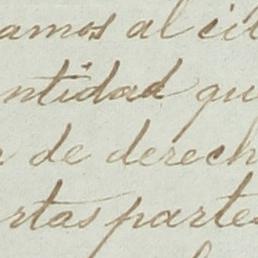 amos al cit
ntidad qu
de derech
rtas partes